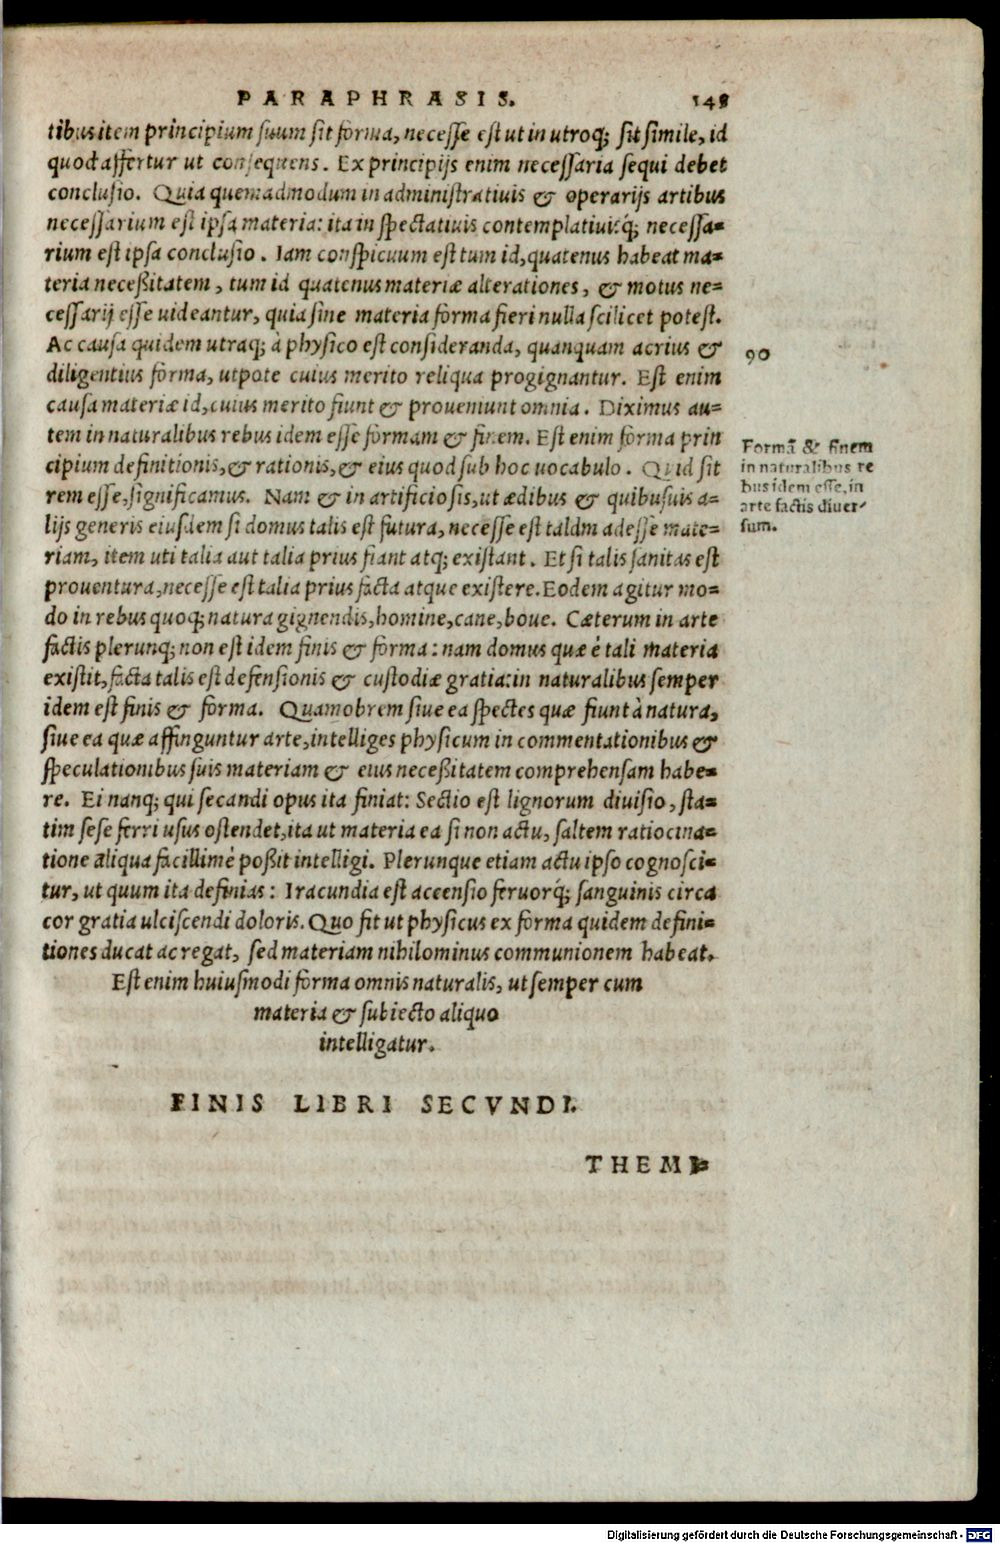 PARAPHRASIS. 149
tibus item principium suum sit forma, necesse est ut in utroq; sit simile, id
quod affertur ut consequens. Ex principijs enim necessaria sequi debet
conclusio. Quia quemadmodum in administratiuis & operarijs artibus
necessarium est ipsa materia: ita in spectatiuis contemplatiuisq́; necessa=
rium est ipsa conclusio. Iam conspicuum est tum id, quatenus habeat ma=
teria neceßitatem, tum id quatenus materiæ alterationes, & motus ne=
cessarij esse uideantur, quia sine materia forma fieri nulla scilicet potest.
Ac causa quidem utraq; à physico est consideranda, quanquam acrius &
diligentius forma, utpote cuius merito reliqua progignantur. Est enim
causa materiæ id, cuius merito fiunt & proueniunt omnia. Diximus au=
tem in naturalibus rebus idem esse formam & finem. Est enim forma prin
cipium definitionis, & rationis, & eius quod sub hoc uocabulo. Quid sit
rem esse, significamus. Nam & in artificiosis, ut ædibus & quibusuis a=
lijs generis eiusdem si domus talis est futura, necesse est talem adesse mate=
riam, item uti talia aut talia prius fiant atq; existant. Et si talis sanitas est
prouentura, necesse est talia prius facta atque existere. Eodem agitur mo=
do in rebus quoq; natura gignendis, homine, cane, boue. Cæterum in arte
factis plerunq; non est idem finis & forma: nam domus quæ è tali materia
existit, facta talis est defensionis & custodiæ gratia: in naturalibus semper
idem est finis & forma. Quamobrem siue ea spectes quæ fiunt à natura,
siue ea quæ affinguntur arte, intelliges physicum in commentationibus &
speculationibus suis materiam & eius neceßitatem comprehensam habe=
re. Ei nanq; qui secandi opus ita finiat: Sectio est lignorum diuisio, sta=
tim sese ferri usus ostendet, ita ut materia ea si non actu, saltem ratiocina=
tione aliqua facillimè poßit intelligi. Plerunque etiam actu ipso cognosci=
tur, ut quum ita definias: Iracundia est accensio feruorq́; sanguinis circa
cor gratia ulciscendi doloris. Quo fit ut physicus ex forma quidem defini=
tiones ducat ac regat, sed materiam nihilominus communionem habeat.
Est enim huiusmodi forma omnis naturalis, ut semper cum
materia & subiecto aliquo
intelligatur.
90
Formã & finem
in naturalibus re
bus idem esse, in
arte factis diuer
sum.
FINIS LIBRI SECVNDI.
THEMI=
Digitalisierung gefördert durch die Deutsche Forschungsgemeinschaft - DFG